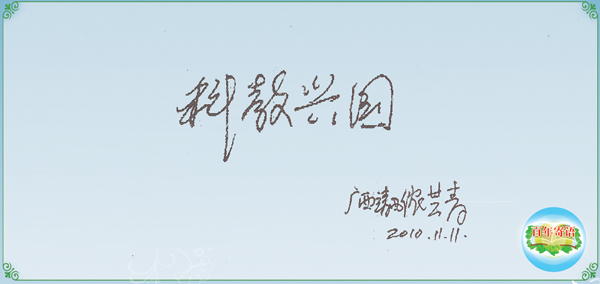 科教兴国
广西靖西侬芸青
2010.11.11.
百年寄语